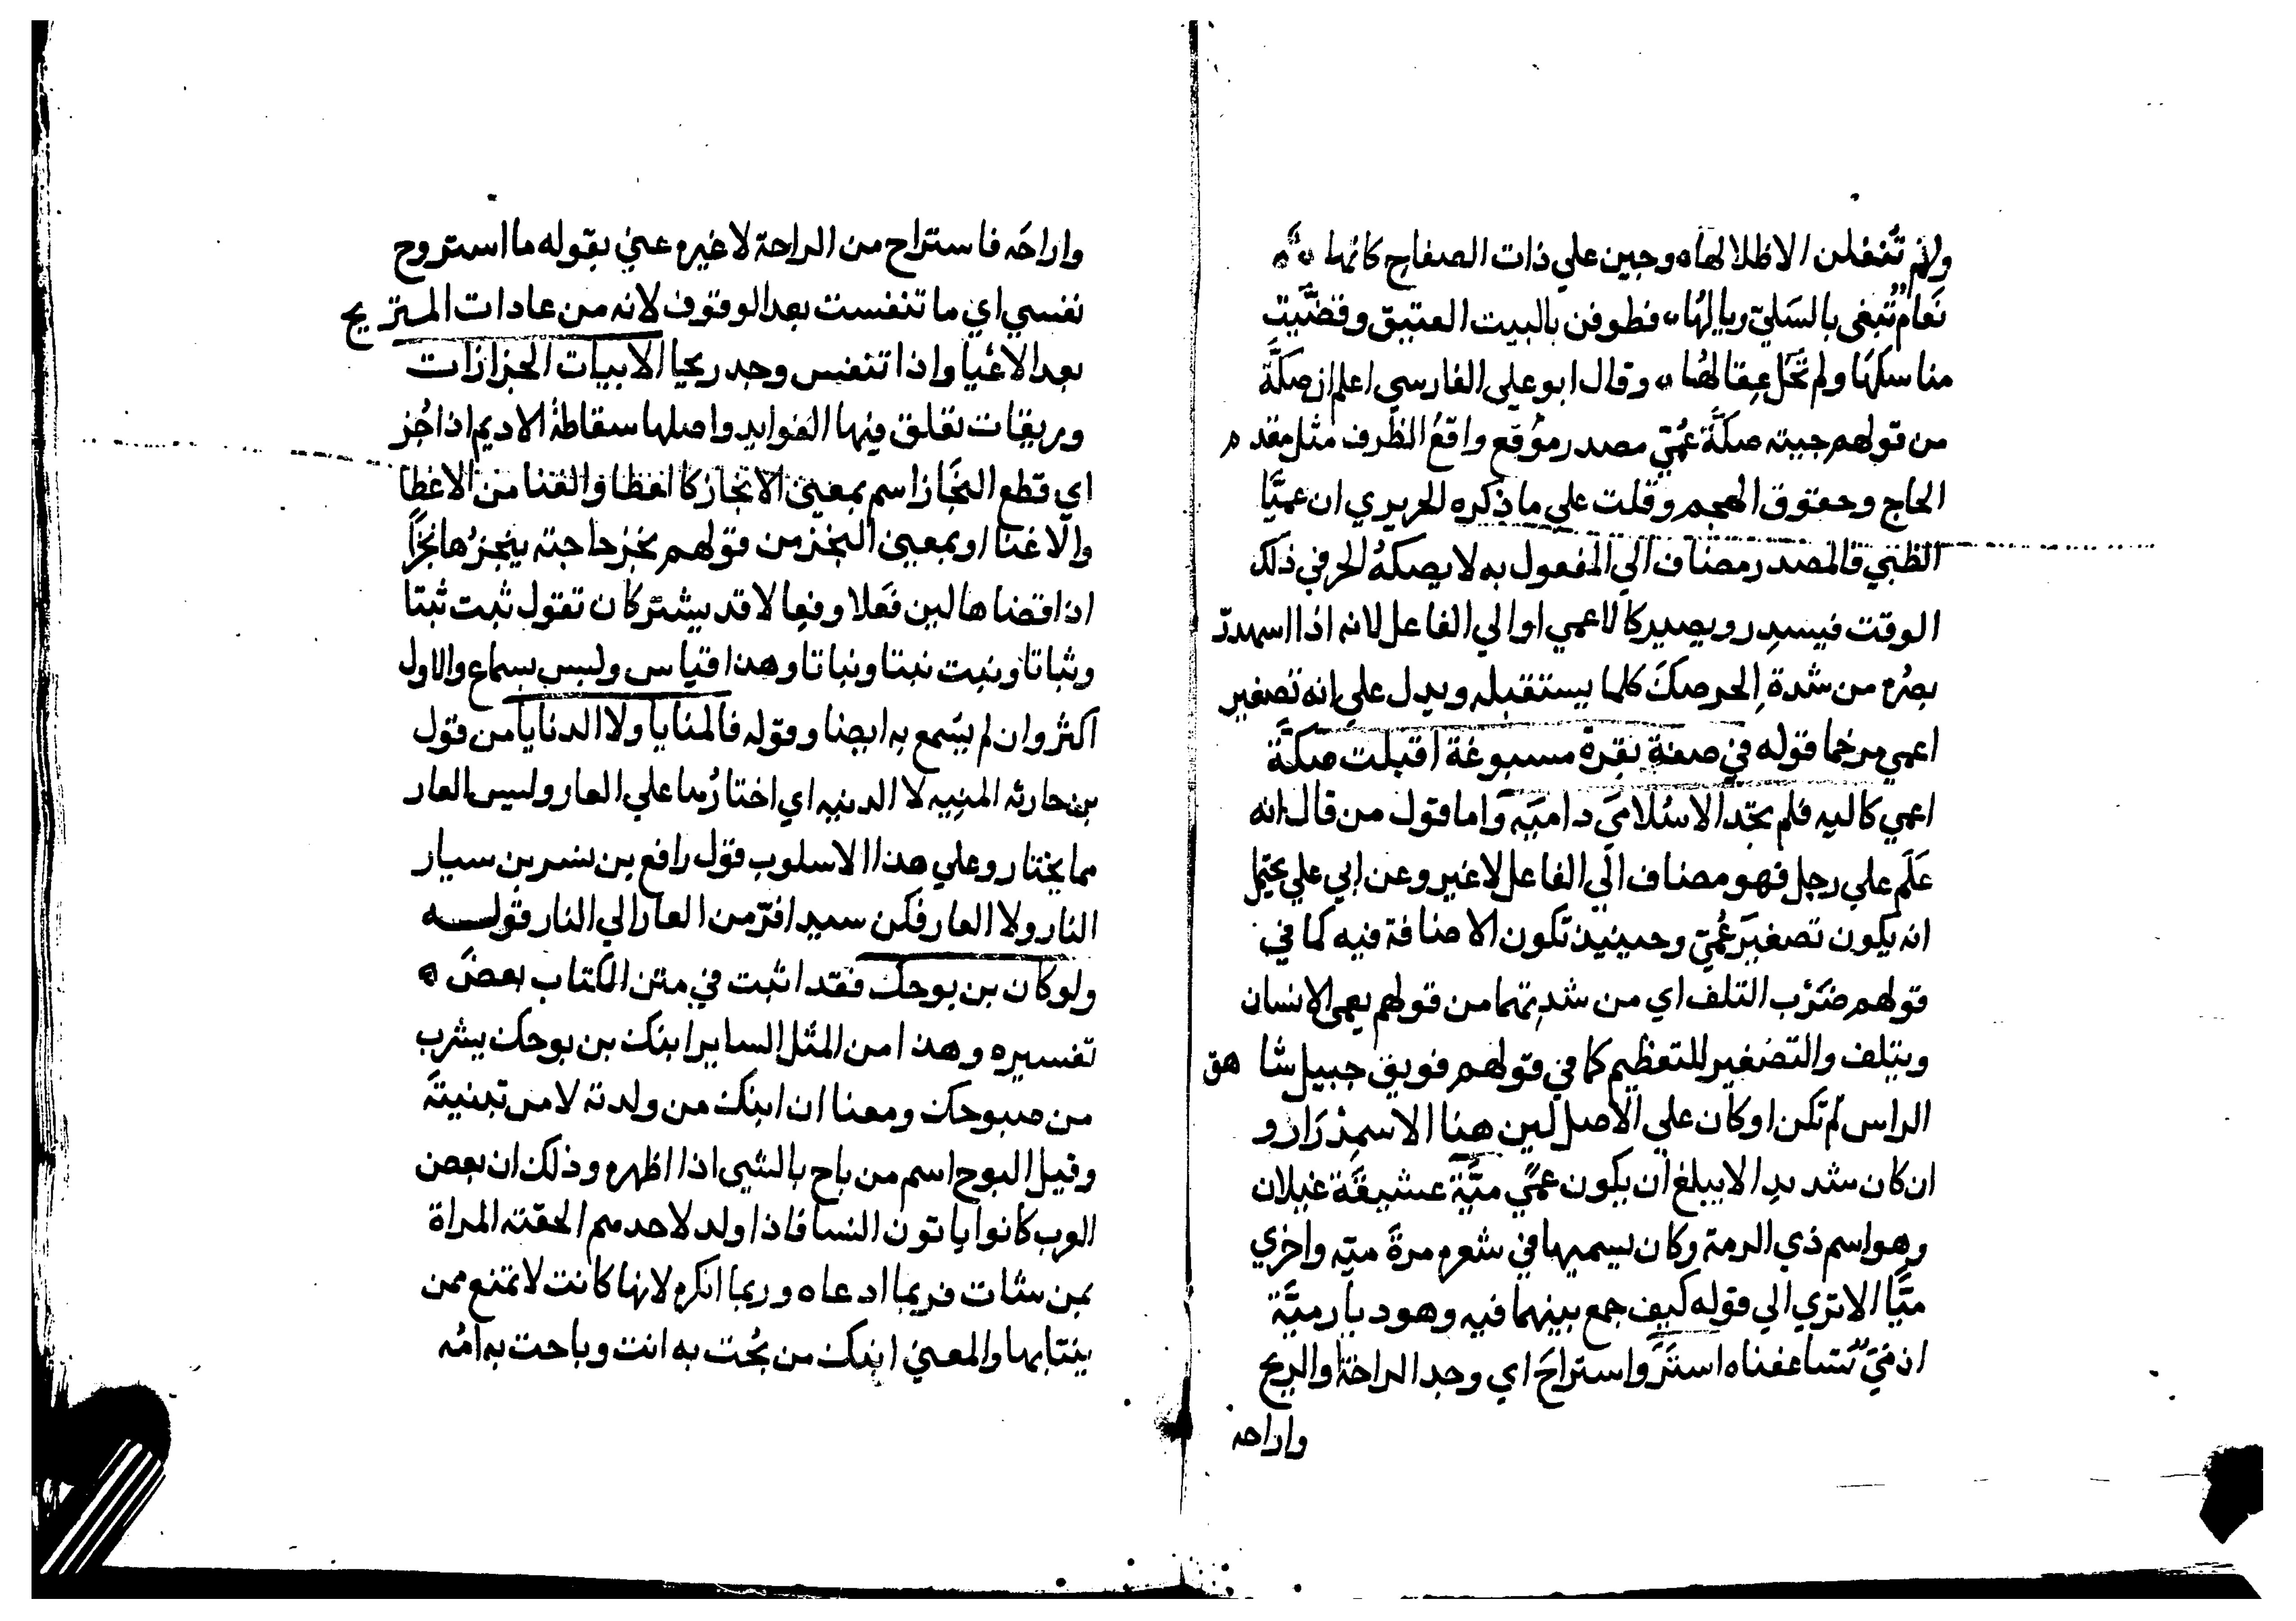 ولم تنفعلن الا ظلالها ه وجبن علي ذات الصفاح كانها ه
نعام تبغي بالسلي ريالها ه فطوفن بالبيت العتيق وقضيت
مناسكها ولم تحل عقالها ه وقال ابو علي الفارسي اعلم ان صكة
من قولهم جيته صكة عمي مصدر موقع واقع الظرف مثل مقدم
الحاج وحقوق الهجم وقلت علي ما ذكره الحريري ان عميا
الظبي فالمصدر مضاف الي المفعول به لا يصكه الحر في ذلك
الوقت فيسدر ويصير كالاعمي او الي الفاعل لانه اذا اسهدر
بصره من شدة الحر صك كلما يستقبله ويدل علي انه تصغير
اعمي مرخما قوله في صفة بقرة مسبوغة اقبلت صكة
اعمي كاليه فلم تجد الا سلامي دامية واما قول من قال انه
علم علي رجل فهو مضاف الي الفاعل لا غير وعن ابي علي يحتمل
انه يكون تصغير عمي وحينيذ تكون الاضافة فيه كما في
قولهم ضرب التلف اي من شدتهما من قولهم يعمي الانسان
ويتلف والتصغير للتعظيم كما في قولهم فويق جبيل شاهق
الراس لم تكن او كان علي الاصل لين هنا الاسمدرار و
ان كان شديدا لا يبلغ ان يكون عمي مية عشيقة غيلان
وهو اسم ذي الرمة وكان يسميها في شعره مرة مية واخري
ميا الا تري الي قوله كيف جمع بينهما فيه وهو ديار مية
اذ مي تساعفنا ه استر واستراح اي وجد الراحة والريح
واراحه
واراحه فاستراح من الراحة لا غيره عني بقوله ما استروح
نفسي اي ما تنفست بعد الوقوف لانه من عادات المستريح
بعد الاعيا واذا تنفس وجد ريحيا الابيات الحزازات
وريقات تعلق فيها الفوايد واصلها سقاطة الاديم اذا جز
اي قطع النجاز اسم بمعني الانجاز كالغطا والغنا من الاغطا
والاغنا او بمعني النجز من قولهم نجز حاجته ينجزها نجزا
اذا قضاها لين فعلا وفعالا قد يشتركان تقول ثبت ثبتا
وثباتا ونبت نبتا ونباتا وهذا قياس وليس بسماع والاول
اكثر وان لم يسمع به ايضا وقوله فالمنايا ولا الدنايا من قول
بن حارثه المنيه لا الدنيه اي اختارها علي العار وليس العار
مما يختار وعلي هذا الاسلوب قول رافع بن نسر بن سيار
النار ولا العار فكن سيدا فر من العار الي النار قوله
ولو كان بن بوحك فقد اثبت في متن الكتاب بعض ه
تفسيره وهذا من المثل الساير ابنك بن بوحك يشرب
من صبوحك ومعنا ان ابنك من ولدته لا من تبنيته
وقيل البوح اسم من باح بالشي اذا اظهره وذلك ان بعض
العرب كانوا ياتون النسا فاذا ولد لاحدهم الحقته المراة
بمن شات فربما ادعاه وربما انكره لانها كانت لا تمتنع ممن
ينتابها والمعني ابنك من بحت به انت وباحت به امه